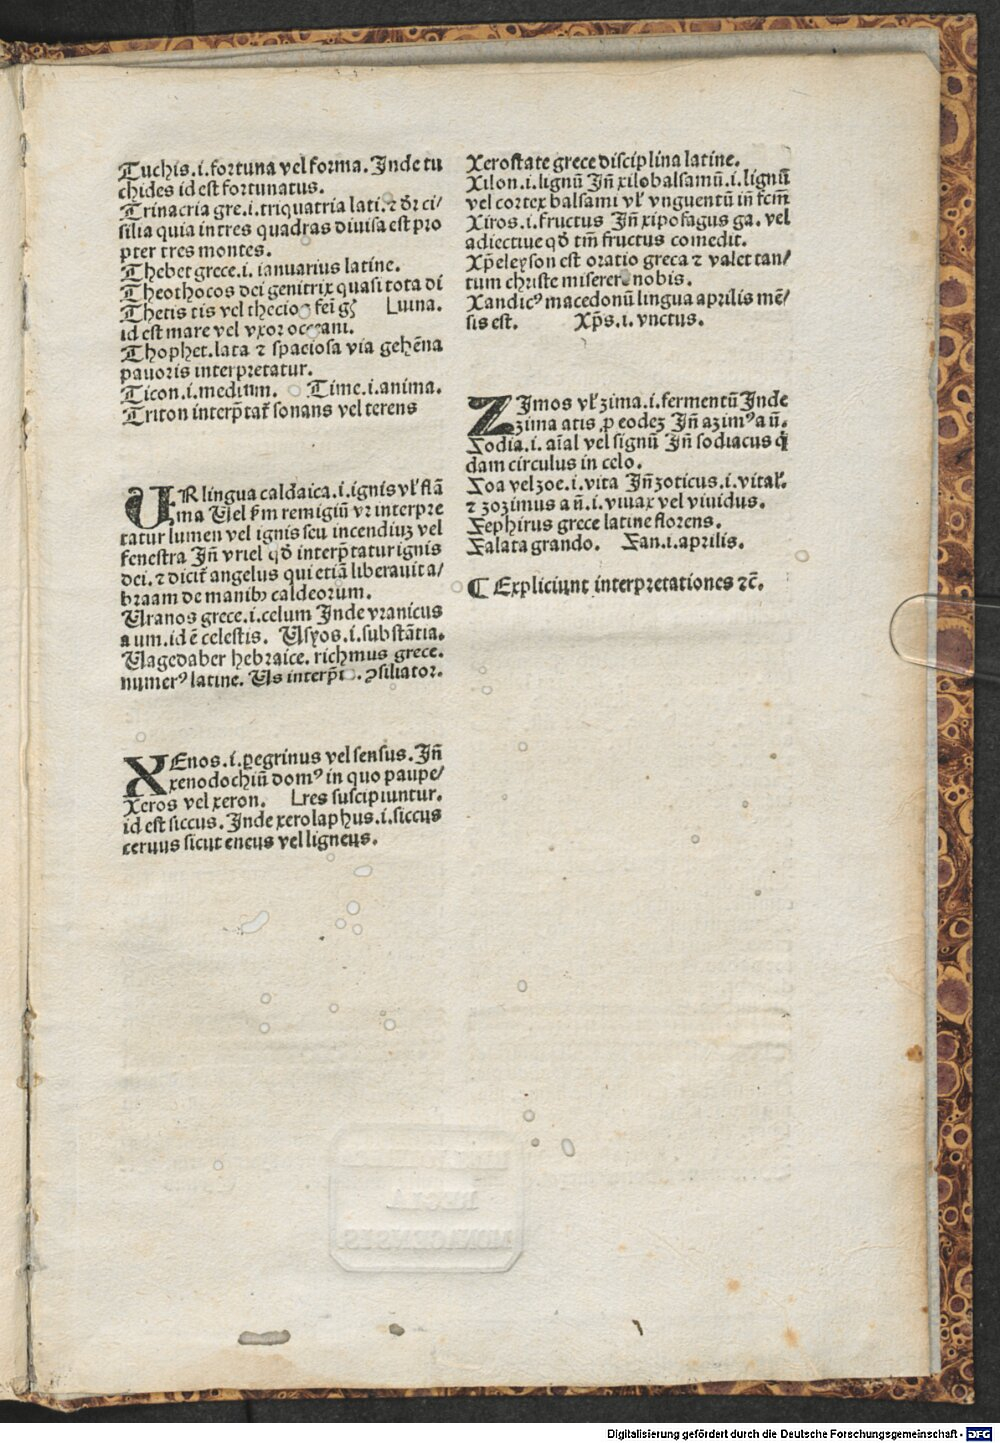 Tuchis.i.fortuna vel forma. Inde tu
chides id est fortunatus.
Trinacria gre.i.triquatria lati.⁊ dr̄ ci/
silia quia in tres quadras diuisa est pro
pter tres montes.
Thebet grece.i. ianuarius latine.
Theothocos dei genitrix quasi tota di
Thetis tis vel thecio fei g⁊ Luina.
id est mare vel vxor oceani.
Thophet.lata ⁊ spaciosa via gehēna
pauoris interpretatur.
Ticon.i.medium. Time.i.anima.
Triton interp̄tat᷑ sonans vel terens
UR lingua caldaica.i.ignis vl᷑ flā
ma Vel s̄m remigiū vr interpre
tatur lumen vel ignis seu incendiuꝫ vel
fenestra Jn̄ vriel qď interp̄tatur ignis
dei.⁊ dicit᷑ angelus qui etiā liberauit a/
braam de manibꝫ caldeorum.
Uranos grece.i.celum Inde vranicus
a um.id ē celestis. Usyos.i.substātia.
Uagedaber hebraice. richmus grece.
numerꝰ latine. Us interp̄t .ꝯsiliator.
XEnos.i.ꝑegrinus vel sensus. Jn̄
xenodochiū domꝰ in quo paupe/
Xeros vel xeron. Lres suscipiuntur.
id est siccus. Inde xerolaphus.i.siccus
ceruus sicut eneus vel ligneus.
Xerostate grece disciplina latine.
Xilon.i.lignū Jn̄ xilobalsamū.i.lignū
vel cortex balsami vl᷑ vnguentum in̄ fcm̄
Xiros.i.fructus Jn̄ xipofagus ga. vel
adiectiue qď tm̄ fructus comedit.
Xp̄eleyson est oratio greca ⁊ valet tan/
tum christe miserere nobis.
Xandicꝰ macedonū lingua aprilis mē/
sis est. Xp̄s.i.vnctus.
ZImos vl᷑ zima.i.fermentū Inde
zima atis ꝑ eodeꝫ Jn̄ azimꝰ a ū.
Zodia.i. aīal vel signū Jn̄ sodiacus q̇
dam circulus in celo.
Zoa vel zoe.i.vita Jn̄ zoticus.i.vital᷑.
⁊ zozimus a ū.i.viuax vel viuidus.
Zephirus grece latine florens.
Zalata grando. Zan.i.aprilis.
¶ Expliciunt interpretationes ⁊c̄.
REGIA
MONACENSIS
Digitalisierung gefördert durch die Deutsche Forschungsgemeinschaft - DFG